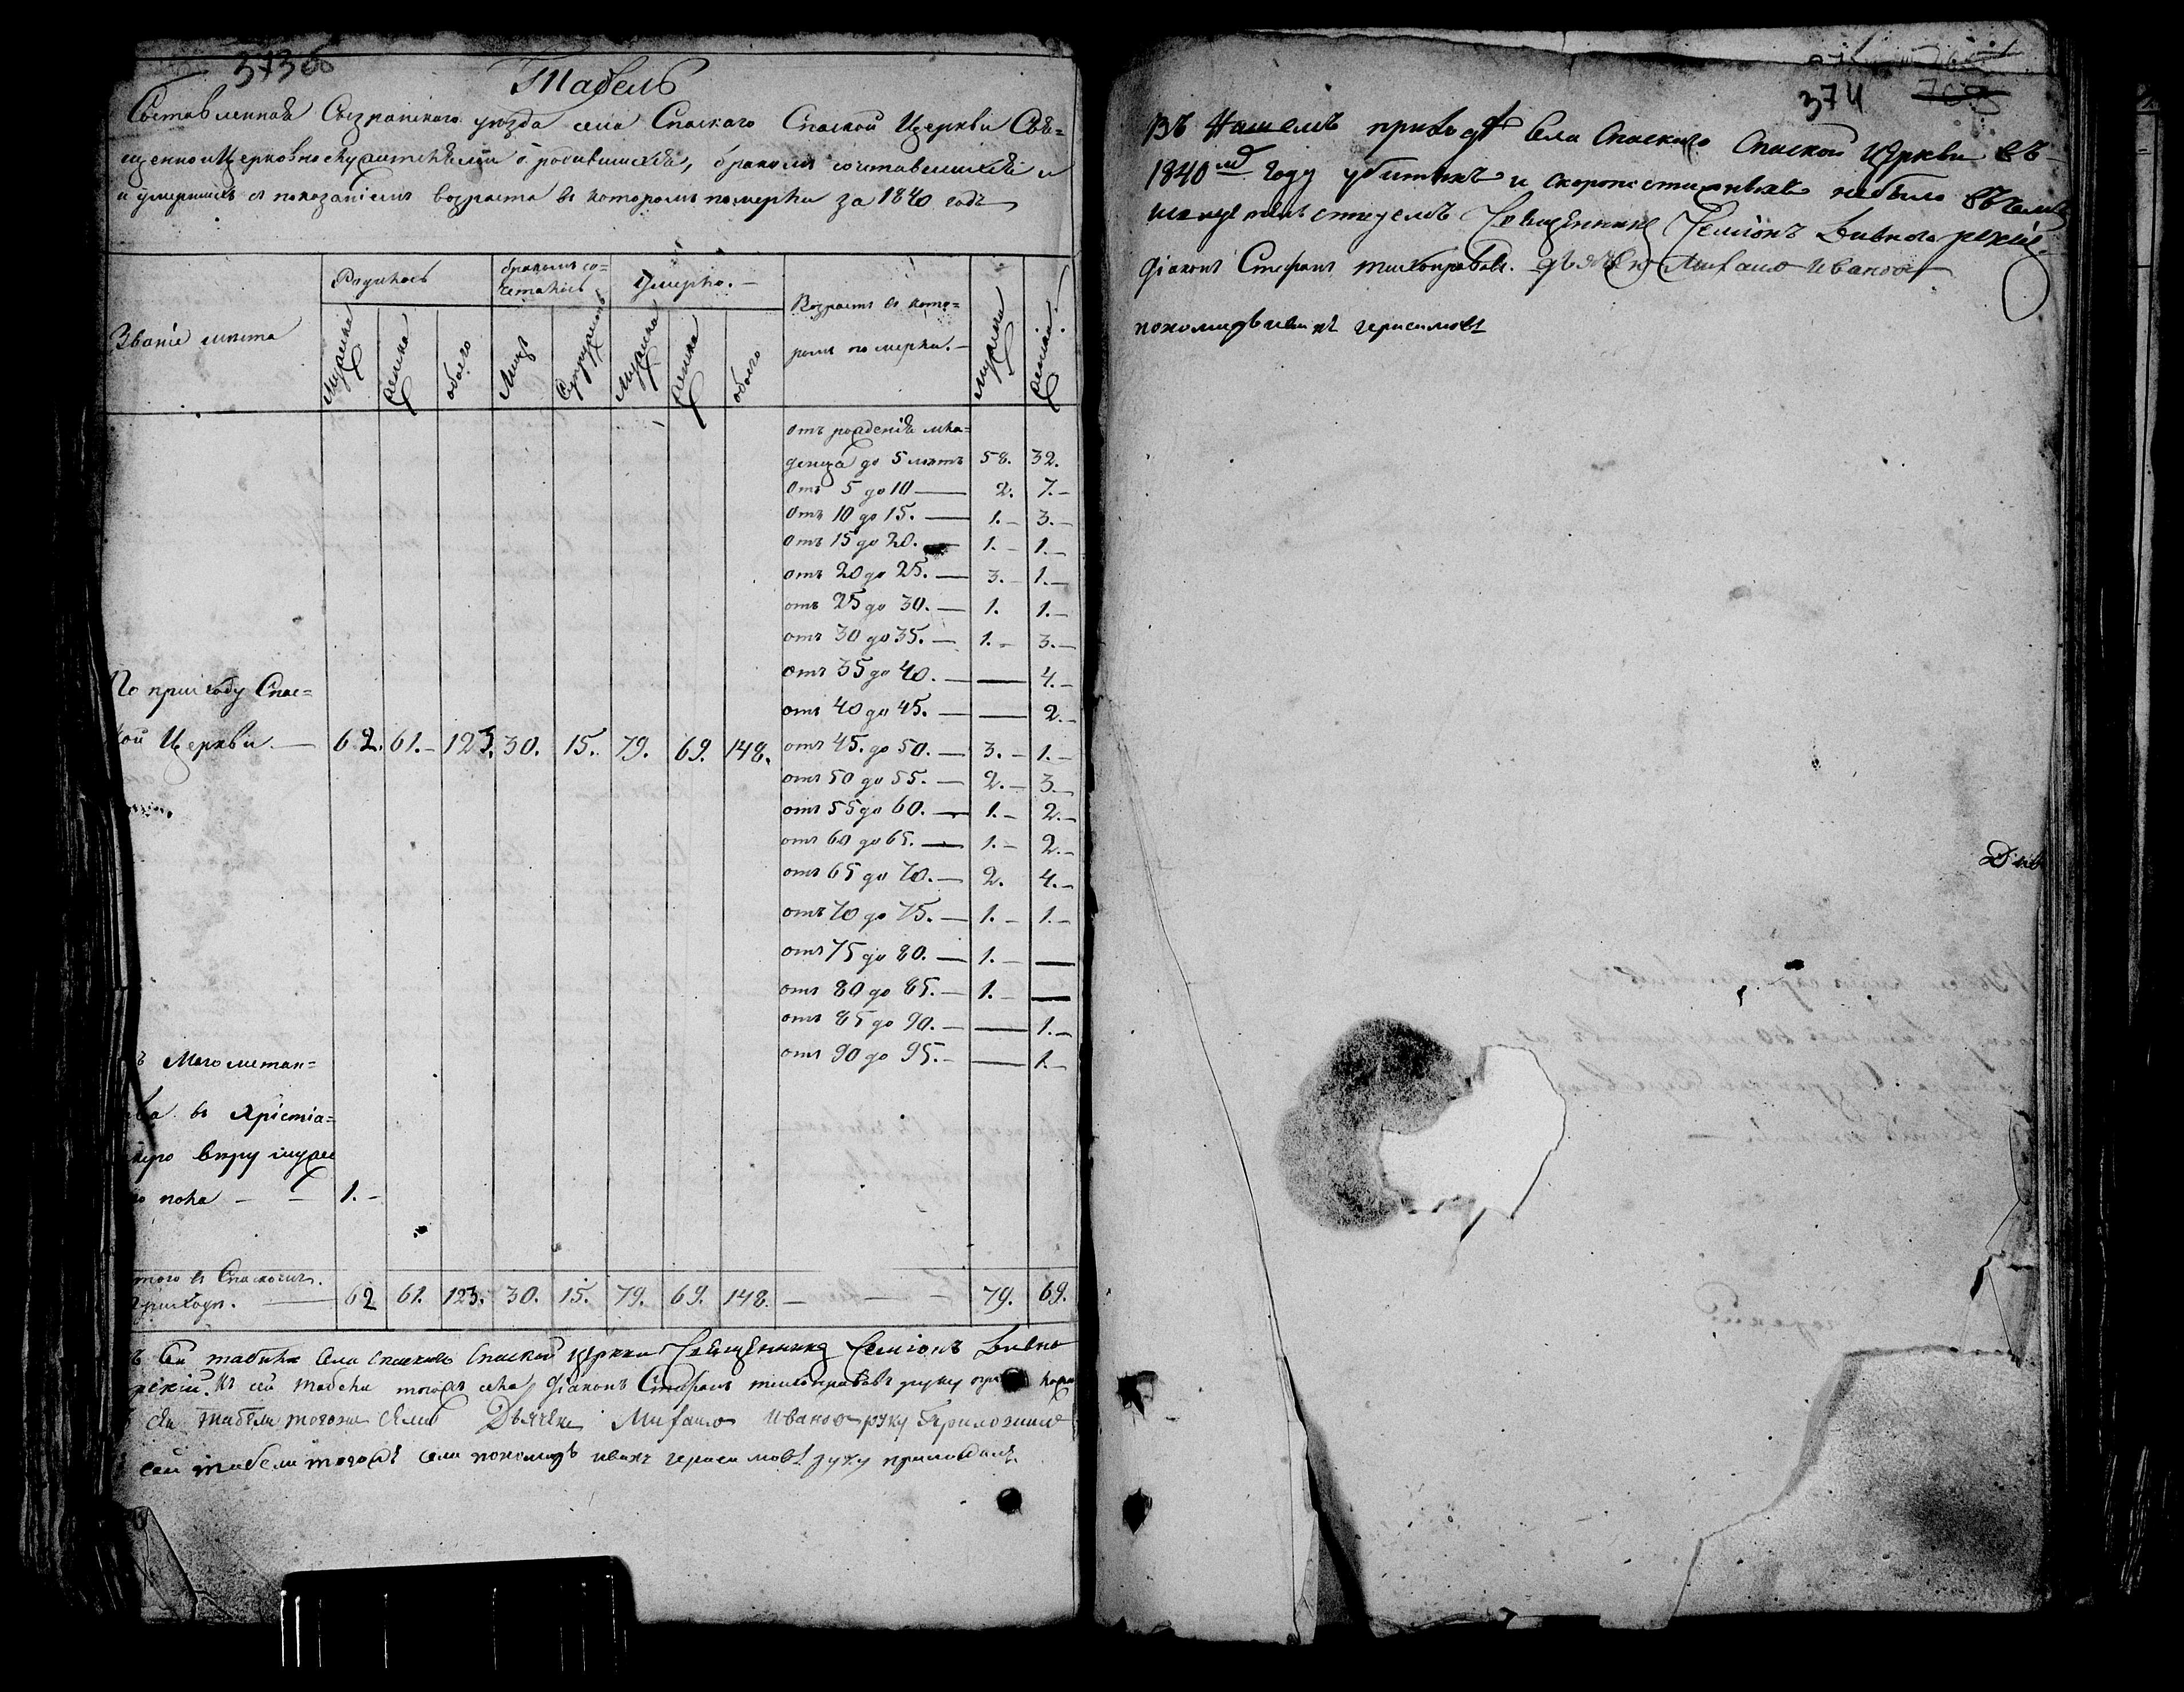 373 об
Табель
Составленная Сызранскаго уезда села Спаскаго Спаской Церкви Свя=
щенно и Церковнослужительми о родившихся, бракомъ сочетавшихся и
и умершихъ съ показаніемъ возраста въ которомъ померли за 1840 годъ
Званіе места
Родилось
бракомъ со=
четалось
Умерло. —
Возрастъ въ кото=
ромъ померли. —
Мужеска
женска
обоего
Лицъ
Супружествъ
Мужеска
женска
обоего
мужеска
женска
отъ рожденія мла=
денца до 5 летъ 58. 32.
отъ 5 до 10 — 2. 7. –
отъ 10 до 15. — 1. – 3. –
отъ 15 до 20. — 1. – 1. –
отъ 20 до 25. — 3. – 1. –
отъ 25 до 30. — 1. 1. –
отъ 30 до 35. — 1. – 3. –
отъ 35 до 40. — — 4. –
отъ 40 до 45. — — 2. –
По приходу Спас=
кой Церкви. — 62. 61. – 123. 30. 15. 79. 69. 148. отъ 45. до 50. — 3. – 1. –
отъ 50 до 55. — 2. – 3. –
отъ 55 до 60. — 1. – 2. –
отъ 60 до 65. — 1. – 2. –
отъ 65 до 70. — 2. 4. –
отъ 70 до 75. — 1. – 1. –
отъ 75 до 80. — 1. – —
отъ 80 до 85. — 1. – —
отъ 85 до 90. — — 1. –
отъ 90 до 95. – — 1. –
ъ Магометан=
ва въ Христіа=
веру мужес
пола — — 1. –
того въ Спаскомъ
приходе. — 62 61. 123. 30. 15. 79. 69. 148. — — — 79. 69.
Сей табели села Спаскаго Спаской церкви Священникъ Семіонъ Дивно
рскій. Къ сей табели тогожъ села діаконъ Стефанъ Тихонравовъ руку
сей табели тогоже села Дьячекъ Михаило Ивановъ руку приложилъ
сей табели тогожъ села пономарь иванъ герасимовъ руку приложилъ.
374
Въ Нашемъ приходе села Спаскаго Спаской Церкви въ
1840мъ году убитыхъ и скоропостижныхъ небыло въ чемъ
Священникъ Семіонъ Дивногорскій
діаконъ Стефанъ Тихонравовъ. дьячекъ Михаило Ивановъ
пономарь иванъ герасимовъ